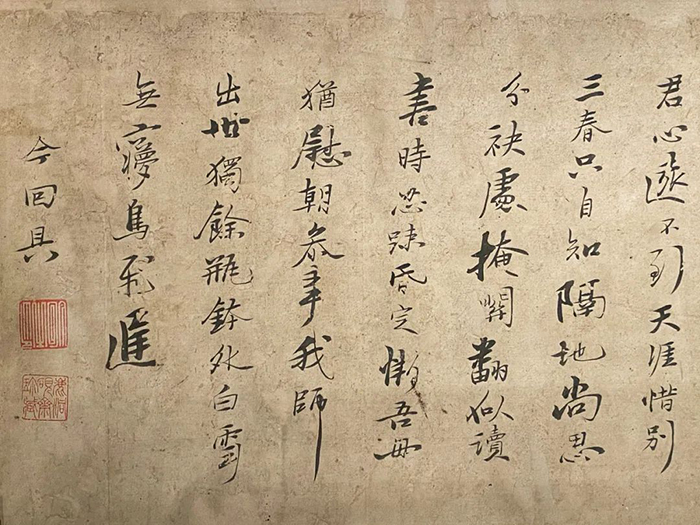 君心遠不到天涯惜別
三春只自知隔地尚思
分袂處掩關翻似讀
書時恐疎昏定慚吾母
猶慰朝參事我師
出世獨餘瓶鉢外白雲
無夢鳥飛遲
今回具